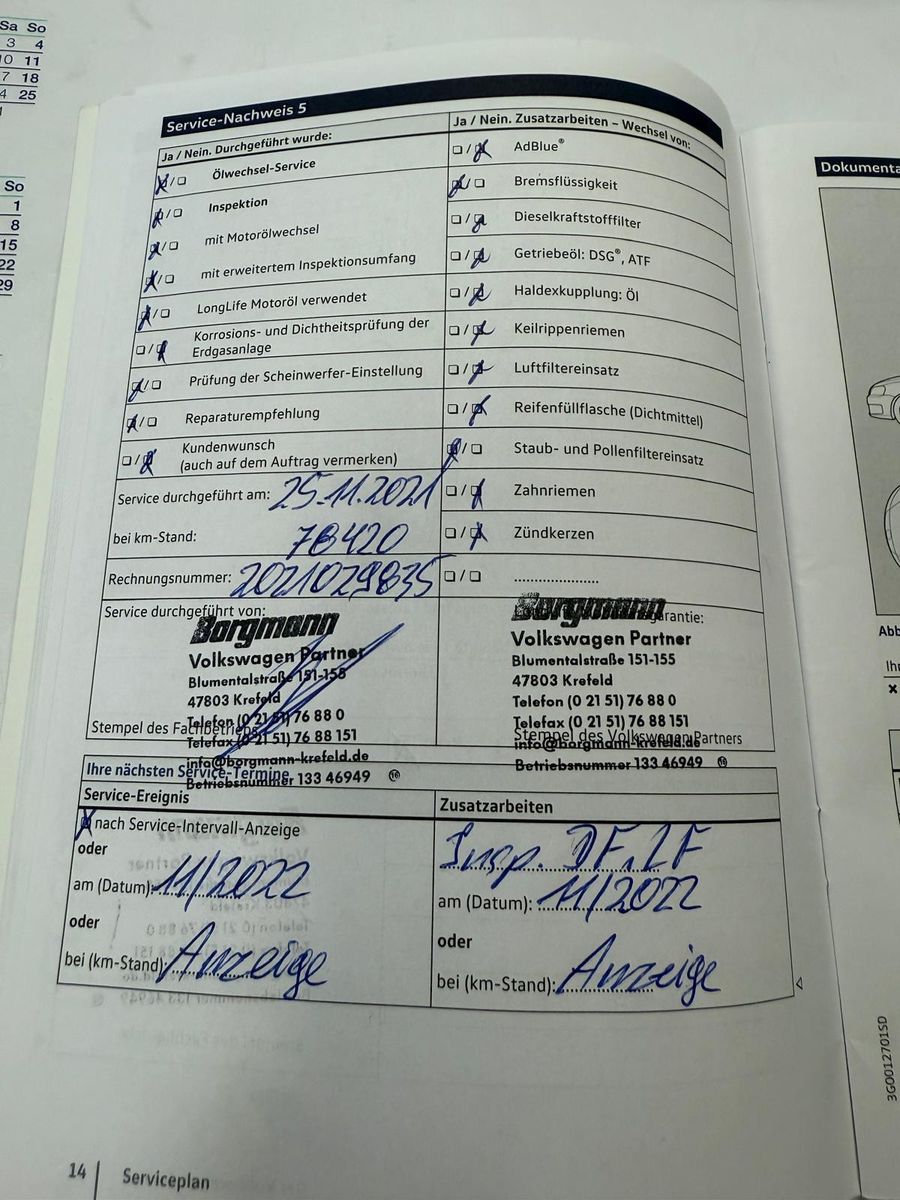 Sa So
3 4
10 11
17 18
24 25
So
1
8
15
22
29
Service-Nachweis 5
Ja / Nein. Durchgeführt wurde:
Ölwechsel-Service
Inspektion
mit Motorölwechsel
mit erweitertem Inspektionsumfang
LongLife Motoröl verwendet
Korrosions- und Dichtheitsprüfung der
Erdgasanlage
Prüfung der Scheinwerfer-Einstellung
Reparaturempfehlung
Kundenwunsch
(auch auf dem Auftrag vermerken)
Service durchgeführt am: 25.11.2021
bei km-Stand: 78420
Rechnungsnummer: 2021029835
Service durchgeführt von:
Borgmann
Volkswagen Partner
Blumentalstraße 151-155
47803 Krefeld
Telefon (0 21 51) 76 88 0
Stempel des Fachbetriebs
Telefax (0 21 51) 76 88 151
info@borgmann-krefeld.de
Betriebsnummer 133 46949 16
Ja / Nein. Zusatzarbeiten – Wechsel von:
AdBlue®
Bremsflüssigkeit
Dieselkraftstofffilter
Getriebeöl: DSG®, ATF
Haldexkupplung: Öl
Keilrippenriemen
Luftfiltereinsatz
Reifenfüllflasche (Dichtmittel)
Staub- und Pollenfiltereinsatz
Zahnriemen
Zündkerzen
.....................
garantie:
Borgmann
Volkswagen Partner
Blumentalstraße 151-155
47803 Krefeld
Telefon (0 21 51) 76 88 0
Telefax (0 21 51) 76 88 151
Stempel des Volkswagen Partners
info@borgmann-krefeld.de
Betriebsnummer 133 46949 16
Ihre nächsten Service-Termine
Service-Ereignis
nach Service-Intervall-Anzeige
oder
am (Datum): 11/2022
oder
bei (km-Stand): Anzeige
Zusatzarbeiten
Insp. DF, LF
am (Datum): 11/2022
oder
bei (km-Stand): Anzeige
14 Serviceplan
Dokumenta
Abb
Ihr
3G0012701SD